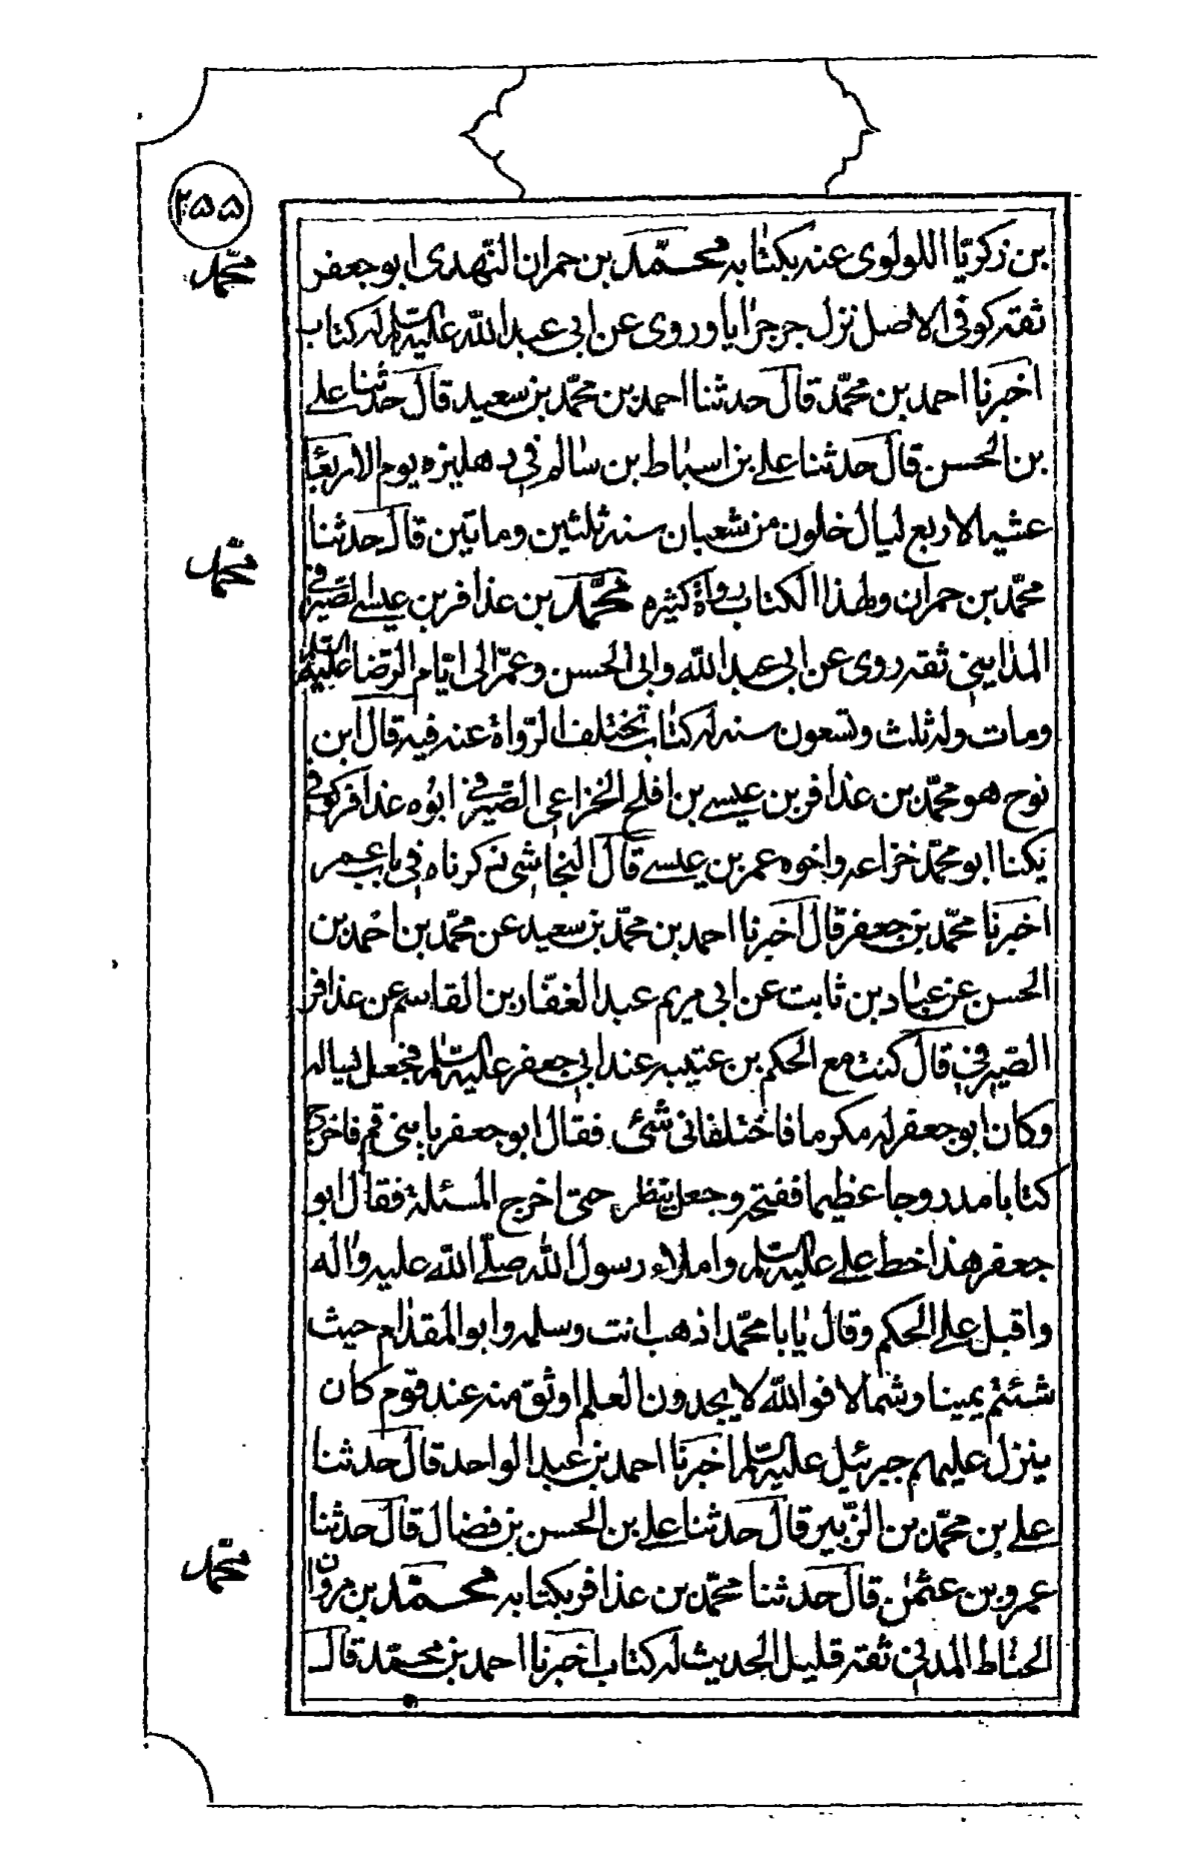 ٢٥٥
محمّد
بن زكريّا اللولوى عنه بكتابه محمّد بن حمران النّهدى ابو جعفر
ثقه كوفى الاصل نزل جرجرايا وروى عن ابى عبد الله عليه السّلم له كتاب
اخبرنا احمد بن محمّد قال حدثنا احمد بن محمّد بن سعيد قال حدثنا على
بن الحسن قال حدثنا على بن اسباط بن سالم فى دهليزه يوم الاربعا
عشيه لاربع ليال خلون من شعبان سنه ثلثين وماتين قال حدثنا
محمّد
محمّد بن حمران ولهذا الكتاب رواة كثيره محمّد بن عذافر بن عيسى الصّيرفى
المداينى ثقه روى عن ابى عبد الله وابى الحسن وعمّر الى ايّام الرّضا عليه السّلم
ومات وله ثلث وتسعون سنه له كتاب تختلف الرّواة عنه فيه قال ابن
نوح هو محمّد بن عذافر بن عيسى بن افلح الخزاعى الصّيرفى ابوه عذافر كوفى
يكنا ابو محمّد خزاعه واخوه عمر بن عيسى قال النجاشى ذكرناه فى باب عمر
اخبرنا محمّد بن جعفر قال اخبرنا احمد بن محمّد بن سعيد عن محمّد بن احمد بن
الحسن عن عباد بن ثابت عن ابى مريم عبد الغفّار بن القاسم عن عذافر
الصّيرفى قال كنت مع الحكم بن عتيبه عند ابى جعفر عليه السّلم فجعل يساله
وكان ابو جعفر له مكرما فاختلفا فى شئ فقال ابو جعفر يا بنى قم فاخرج
كتابا مدروجا عظيما ففتحه وجعل ينظر حتى اخرج المسئلة فقال ابو
جعفر هذا خط على عليه السّلم واملاء رسول الله صلّى الله عليه واله
واقبل على الحكم وقال يابا محمّد اذهب انت وسلمه وابو المقدام حيث
شئتم يمينا وشمالا فوالله لا يجدون العلم اوثق منه عند قوم كان
ينزل عليهم جبرئيل عليه السّلم اخبرنا احمد بن عبد الواحد قال حدثنا
على بن محمّد بن الزّبير قال حدثنا على بن الحسن بن فضال قال حدثنا
محمّد
عمرو بن عثمن قال حدثنا محمّد بن عذافر بكتابه محمّد بن مروان
الحنّاط المدنى ثقه قليل الحديث له كتاب اخبرنا احمد بن محمّد قال